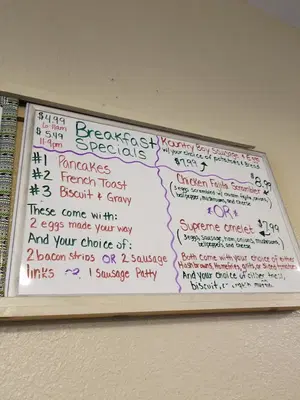 $4.99
6-11am
$5.49
11-9pm
Breakfast
Specials
#1 Pancakes
#2 French Toast
#3 Biscuit + Gravy
These come with:
2 eggs made your way
And your choice of:
2 bacon strips OR 2 sausage
links 1 sausage Patty
Kountry Boy Sausage + Egg
w/ your choice of potatoes + bread
$7.99
Chicken Fajita Scrambler
$8.99
3 eggs scrambled w/ chicken fajita, onions,
bellpepper, mushrooms, and cheese
OR
Supreme omelet
$7.99
3 eggs, sausage, ham, onions, mushrooms,
bellpeppers and cheese
Both come with your choice of either
Hashbrowns, Homefries, grits, or sliced tomatoes
And your choice of either toast,
biscuit, or english muffin